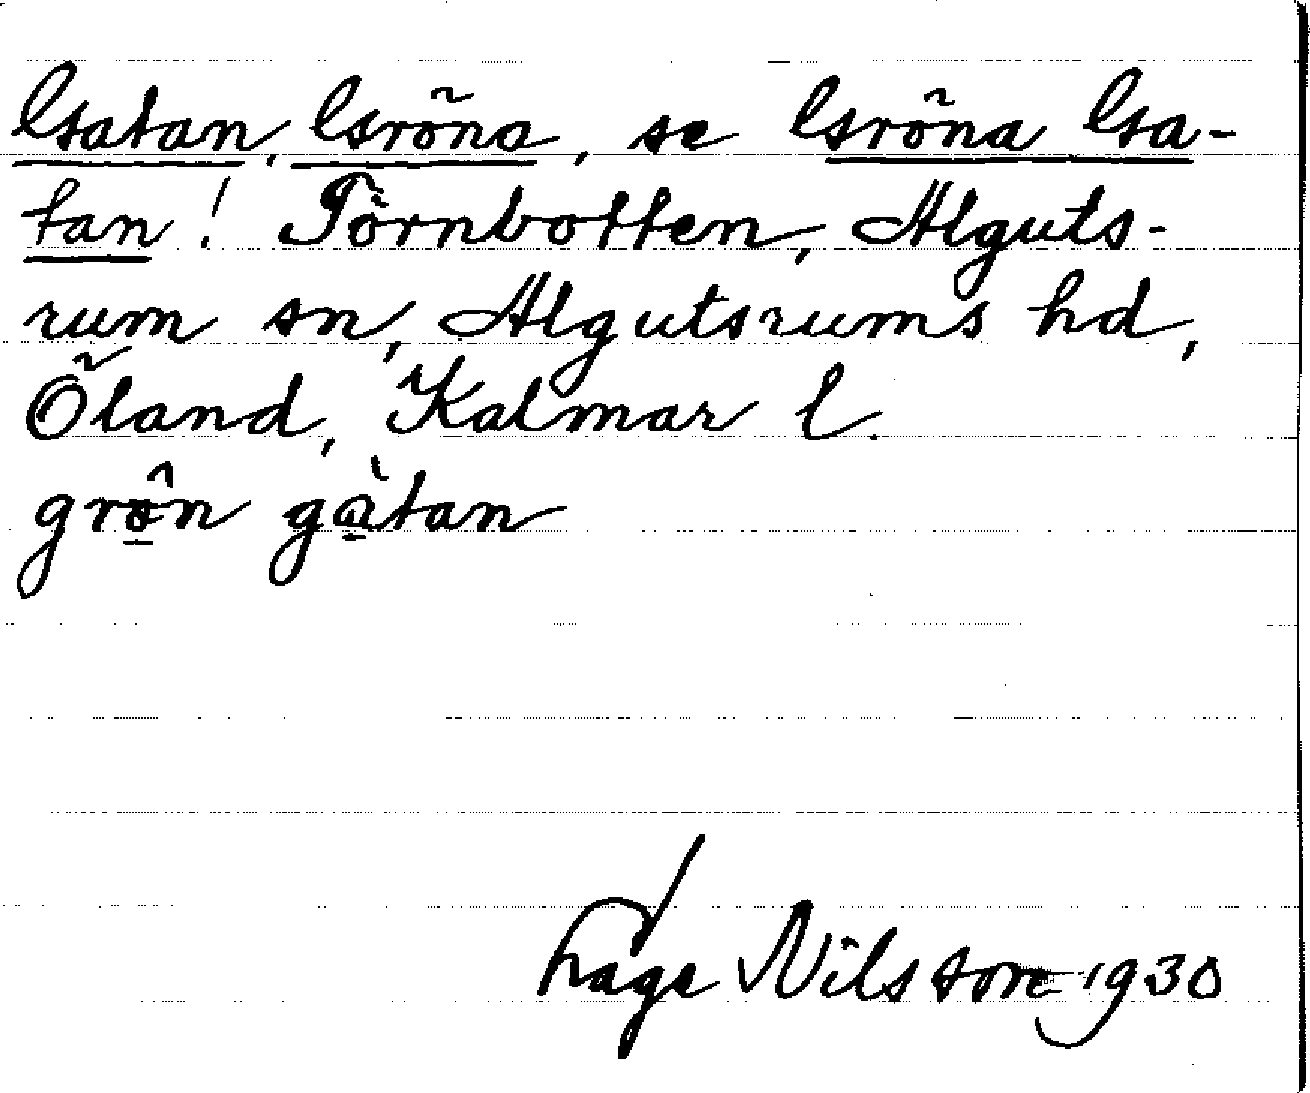 Gatan, Gröna, se Gröna Ga-
tan! Törnbotten, Alguts-
rum sn, Algutsrums hd,
Öland, Kalmar l.
grö̂n gàtan
Tage Nilsson 1930